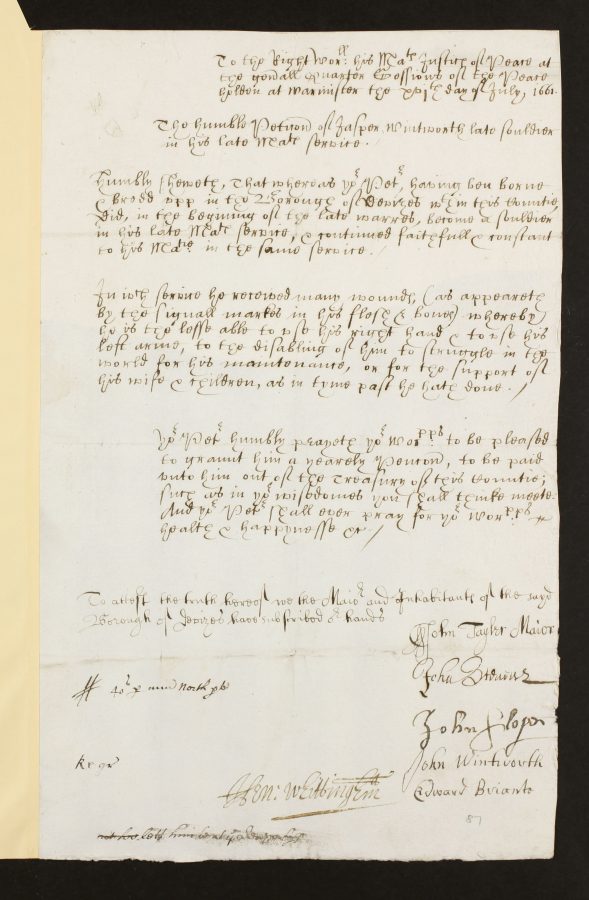 To the Right Wor:ll his Mats Justices of Peace at
the gen'all Quarter Sessions of the Peace
holden at Warmister the xvith day of July, 1661.
The humble Peticon of Jasper Wintworth late souldier
in his late Mats service.
Humbly sheweth, That whereas yor Petr, having ben borne
& bredd upp in the Borough of Devizes wthin this Countie,
Did, in the begining of the late warres, become a souldier
in his late Mats service, & continued faithfull & constant
to his Matie in the same service./
In wch service he received many wounds, (as appeareth
by the signall markes in his flesh & bones) whereby
he is the lesse able to use his right hand & to use his
left arme, to the disabling of him to struggle in the
world for his maintenance, or for the support of
his wife & children, as in tyme past he hath done./
Yor Petr humbly prayeth yor worpps to be pleased
to graunt him a yearely Pencon, to be paid
unto him out of the Treasury of this Countie;
such as in yor wisedomes you shall thinke meete.
And yor Petr shall ever pray for yor worpps
health & happynesse &c/
To attest the truth hereof we the Maior and Inhabitants of the sayd
Borough of Devizes have subscribed or hands
John Tayler Maior
John Stevens
40s p ann
John Sloper
John Wintworth
Edward Briante
87